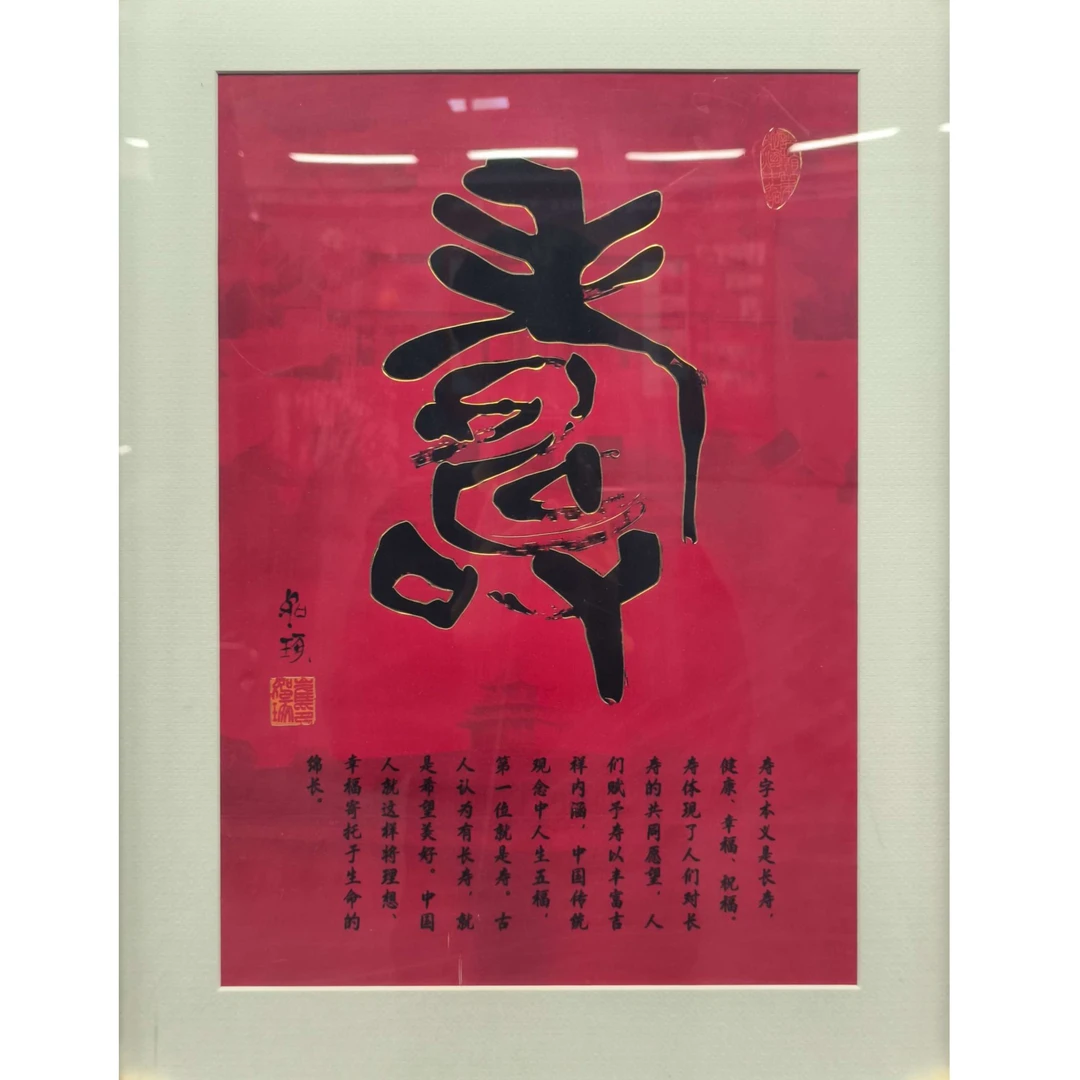 壽
寿字本义是长寿，
健康、幸福、祝福。
寿体现了人们对长
寿的共同愿望，人
们赋予寿以丰富吉
祥内涵，中国传统
观念中人生五福，
第一位就是寿。古
人认为有长寿，就
是希望美好。中国
人就这样将理想、
幸福寄托于生命的
绵长。